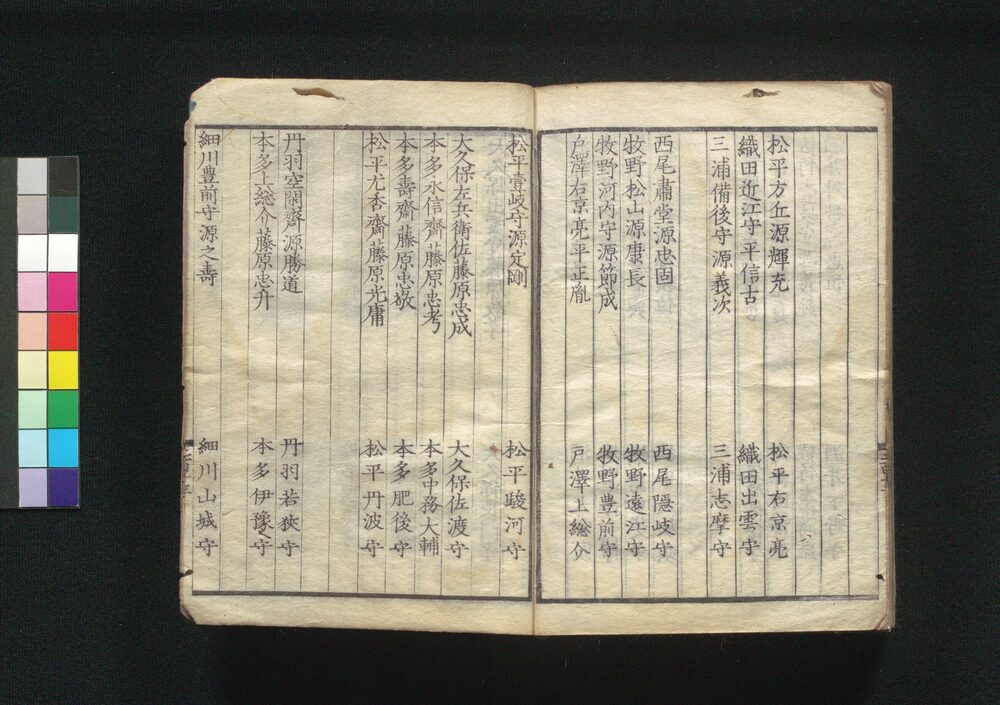 松平方丘源輝充 松平右京亮
織田近江守平信古 織田出雲守
三浦備後守源義次 三浦志摩守
西尾肅堂源忠固 西尾隠岐守
牧野松山源康長 牧野遠江守
牧野河内守源節成 牧野豊前守
戸澤右京亮平正胤 戸澤上総介
松平壹岐守源定剛 松平駿河守
大久保左兵衛佐藤原忠成 大久保佐渡守
本多永信齋藤原忠考 本多中務大輔
本多壽齋藤原忠敬 本多肥後守
松平尤杏齋藤原光庸 松平丹波守
丹羽空閑齋源勝道 丹羽若狹守
本多上総介藤原忠升 本多伊豫守
細川豊前守源之壽 細川山城守